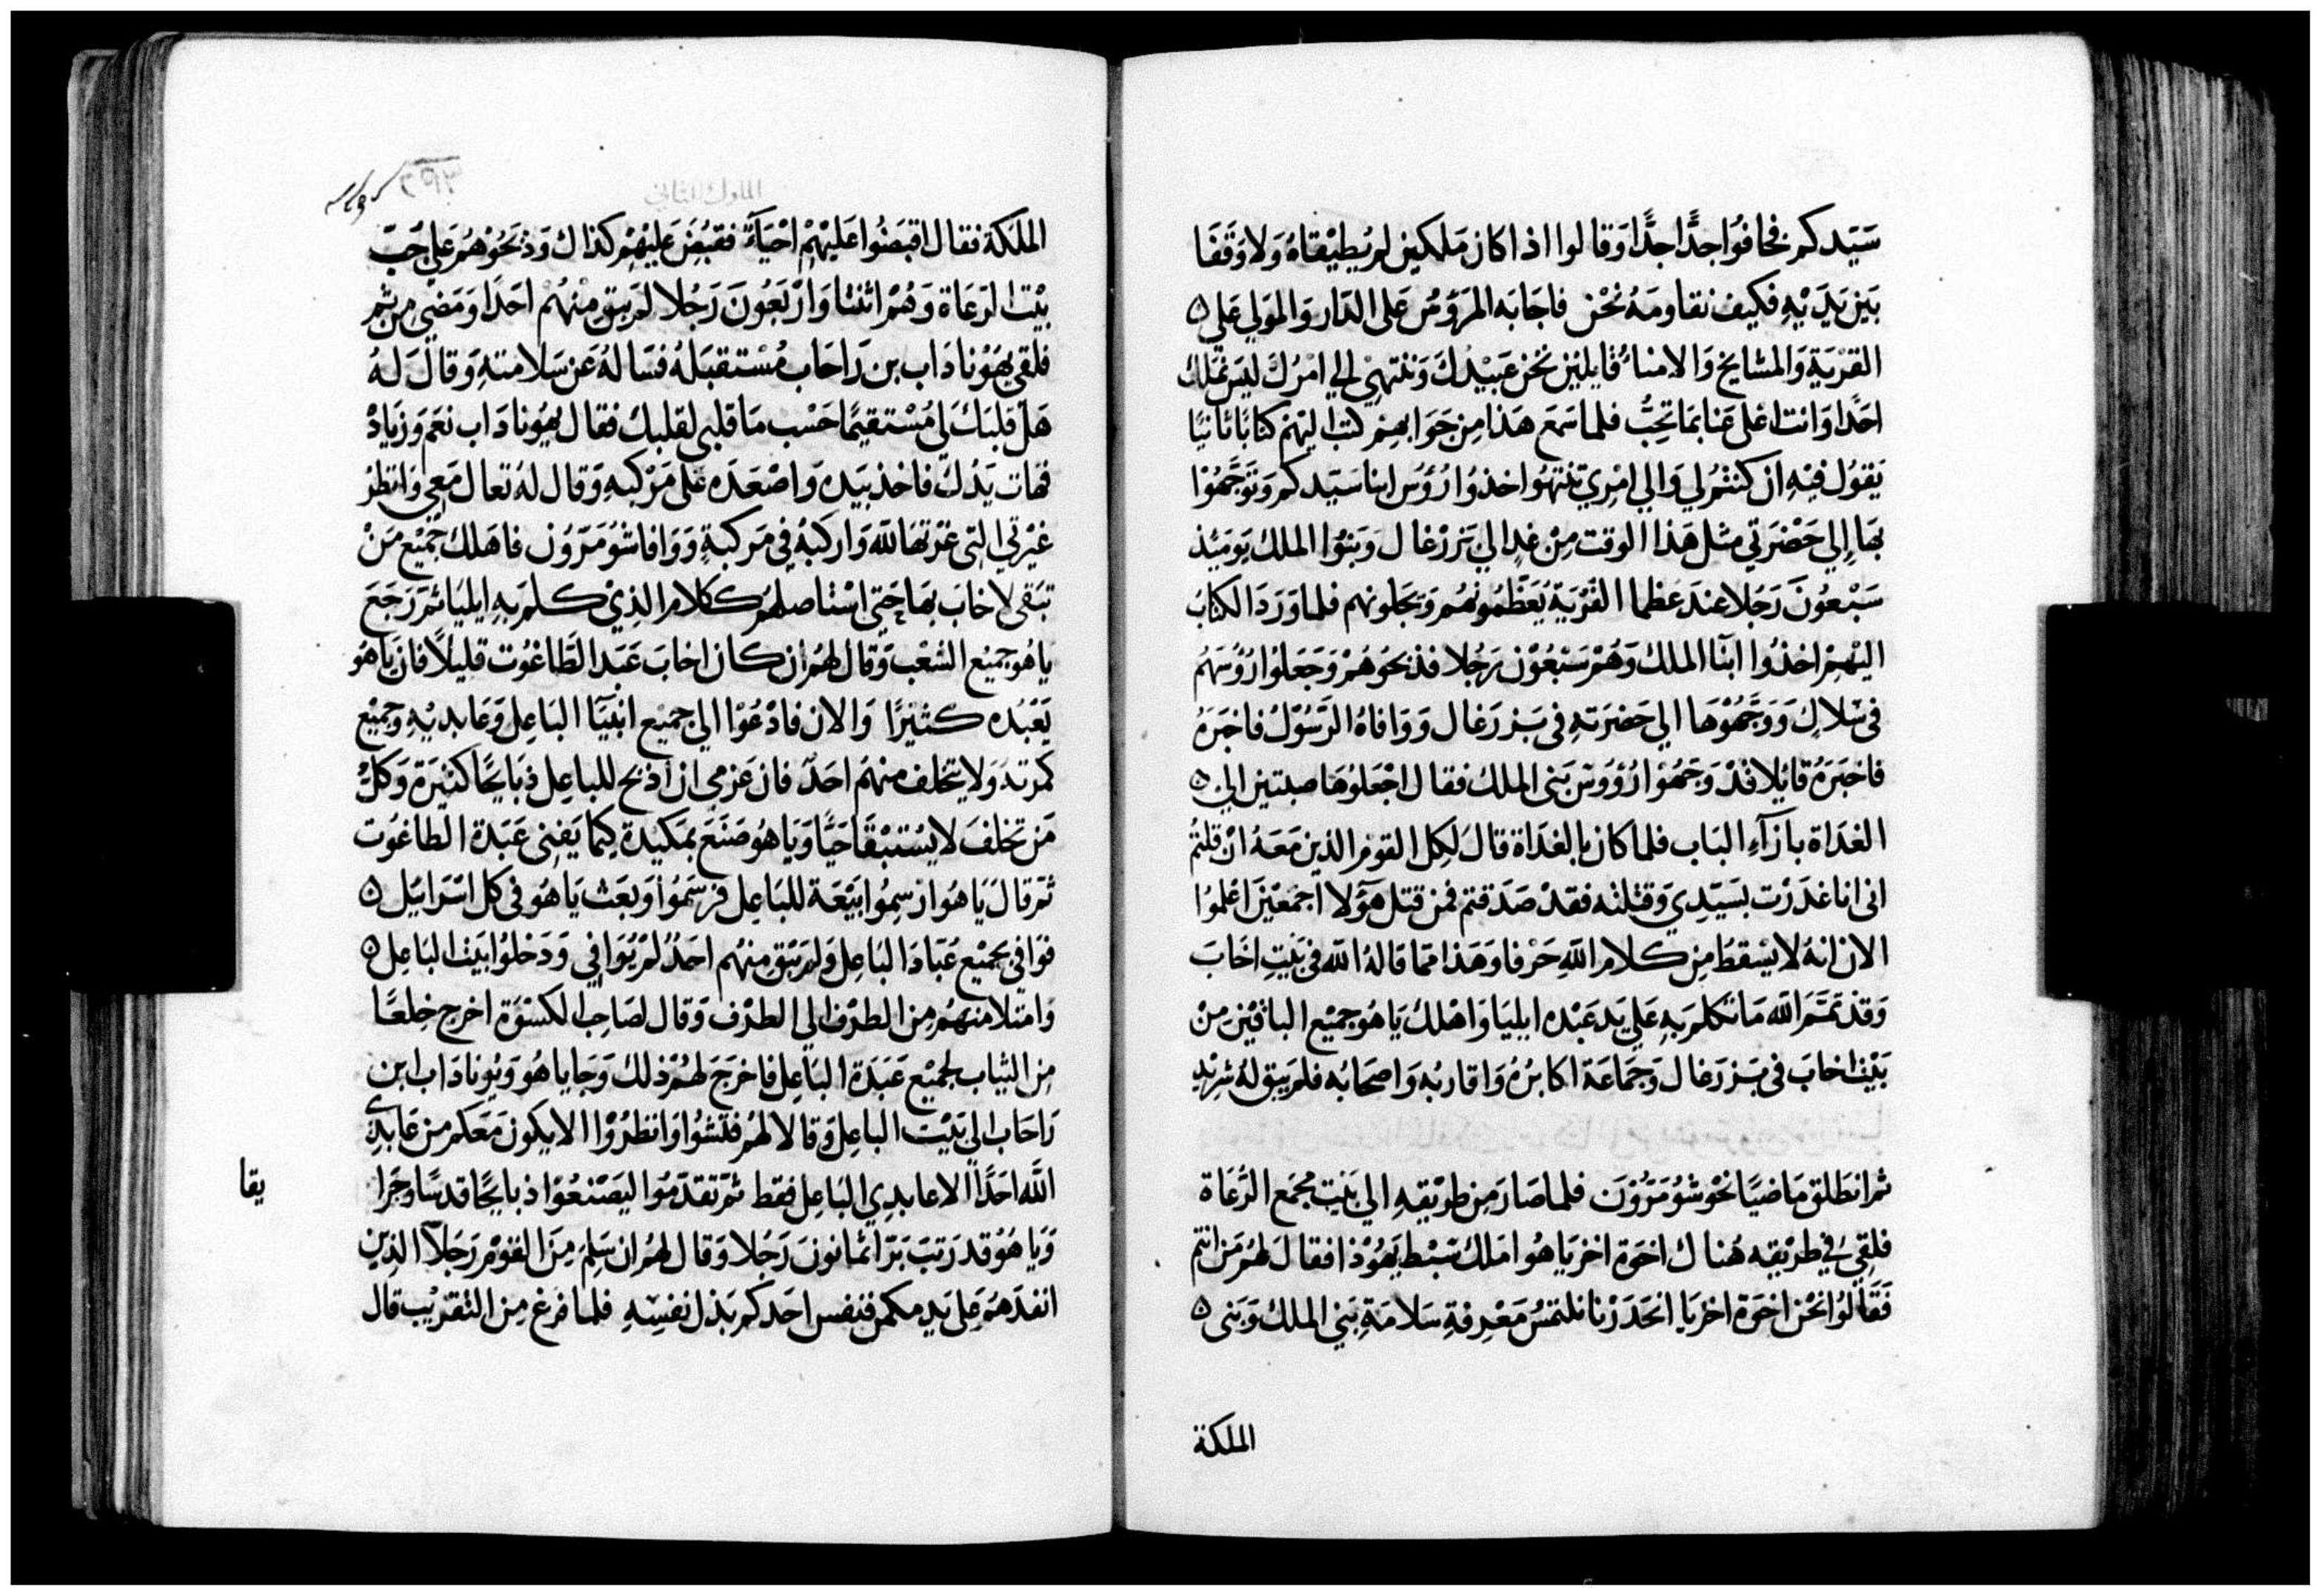 سَيّدكم فخافوا جدًّا جدًّا وَقالوا اذا كان مَلكين لم يُطيْقاهُ وَلا وَقفَا
بَين يَدَيْهِ فكيف نقاومَهُ نحْن فاجَابَه المرَؤمُر عَلى الدّار وَالمولي عَلي
القرْيَةِ وَالمشايخ وَالامناءُ قايلين نحن عَبيْدكَ وَننتهي الي امْرُكَ ليسَ نُملك
احَدًا وَانت اعْلى عَنا بمَا تحِبُّ فلما سَمعَ هَذا مِن جَوَابهم كتب اليهم كتابًا ثانيًا
يَقوُل فيْهِ ان كنتم لي وَالي امْرِي تنتهُوا خذوُا رُؤس ابنا سَيّدكم وَتوَجَّهُوا
بهَا إلي حَضْرَتي مثل هَذا الوقت مِنْ غدٍ الي يَزرْغال وَبنوُا الملك يَومَئذ
سَبْعوُنَ رَجُلا عندَ عَظما القرْيَةِ يُعَظّمُونهُم وَيجَلونهم فلما وَرَدَ الكتابُ
اليْهِمْ اخذُوا ابنَا الملك وَهُمْ سَبْعُوْن رَجُلا فذبحَوهُمْ وَجَعَلوْا رُؤسَهُم
في سَلالٍ وَوَجَّهُوْهَا الي حَضرَتهِ في يَزرَغال وَوَافاهُ الرَّسُوْلُ فاخبَرَهُ
فاخبَرَهُ قايُلا قدْ وَجَهُوْا رُؤوسَ بَني الملك فقال اجْعَلوُهَا صبتين الي
الغدَاة بازآءِ البَاب فلما كان بالغدَاة قالَ لكل القوم الذين مَعَهُ انْ قلتمُ
اني انا غدَرْت بسَيّدِي وَقتلته فقدْ صَدَقتم فمن قتل هَؤلا اجمَعْيْن اعْلموُا
الان انهُ لا يسْقطُ مِن كلام اللهِ حَرْفا وَهَذا ممّا قالهُ الله في بَيْتِ اخَابَ
وَقدْ تمَّمَ الله مَا تكلم بهِ عَلي يَد عَبْده ايليَا وَاهْلك يَاهُو جميْع الباقيْن مِنْ
بَيْت اخابَ في يَزرَغال وَجَمَاعَة اكابرُهُ وَاقاربُه وَاصحَابُه فلم يَبق لهُ شرِيْدٍ
ثم انطلق مَاضيًا نحْو شوُمَرُوْنَ فلما صَارَ مِن طرْيقهِ الي بَيْتِ مجْمَع الرُّعَاة
فلقِيَ في طرْيقه هُناك اخوَة اخزيَاهُو املك سَبْط يَهُوْذا فقالَ لهُم مَن انتم
فَقَالوُا نحْن اخوَة اخزيَا انحَدَرْنا نلتمسُ مَعْرِفةِ سَلامَةِ بَني الملك وَبَني
الملكة
الملوك الثاني
الملكة فقال اقبضُوا عَليْهِمْ احْيَاءً فقبُضَ عَليْهِم كذاك وَذبَحُوْهُم عَلي جُبّ
بيْت الرّعَاة وَهُمْ اثنتا وَارْبَعُونَ رَجُلا لم يَبق مِنْهُمْ احَدًا وَمَضي من ثم
فلقي يهَوُنادَاب بن رَاحَاب مُسْتقبَلهُ فسَالهُ عَن سَلامتهِ وَقالَ لهُ
هَلْ قلبَك لي مُسْتقيمًا حَسْب مَا قلبي لقلبك فقال يهوُنادَاب نعَم وَزيَادْ
فهَات يَدُك فاخذ بيَده وَاصْعَدَه عَلى مَرْكبهِ وَقال لهُ تعال مَعي وَانظرُ
غيْرتي التي غرْتهَا للّه وَاركبَهُ في مَركبةٍ وَوَافا شوُمَرُوْن فاهلك جميْع مَنْ
تبَقى لاخابَ بهَا حَتي اسْتاصلهُم ككلام الذِيْ كلم بهِ ايليَا ثمَّ رَجَعَ
ياهُو جميْع الشعْب وَقال لهُم ان كان اخابَ عَبَد الطَّاغوُت قليلاً فان ياهُو
يَعْبُده كثيْرًا وَالان فادْعُوْا الي جميْع انبيَآ البَاعِل وَعَابديْهِ وَجميْع
كمرته وَلا يتخلف منهُم احَدٌ فان عَزمي ان اذبح للباعِل ذبَايحًا كثيْرَة وَكلُّ
مَن تخلفَ لا يُستبْقا حَيًّا وَياهُو صَنعَ بمَكيْدةٍ كِيمَا يَفني عَبَدة الطاغوُت
ثمّ قالَ يَاهُو ان سِموُا بَيْعَة للبَاعِل فرسَمُوا وَبعَث يَاهُو في كل اسْرَايل
فوَافي جميْع عُبّادَ البَاعِل وَلم يَبْق منهُم احَدٌ لم يُوَافي وَدَخلوُا بَيْت البَاعِل
وَامتلا منهُم مِن الطرْف الي الطرْف وَقال لصَاحِب الكسْوَة اخرج خِلعًا
مِن الثياب لجميْع عَبَدَة البَاعِل فاخرَجَ لهُم ذلك وَجَا ياهُو وَيُونادَاب ابن
رَاحَاب الي بَيْت الباعِل وَقالا لهُم فتشوُا وَانظرُوْا الا يكون مَعَكم من عَابدِي
الله احَدًا الا عابدِي البَاعِل فقط ثمّ تقدّمَوا ليَصْنعُوْا ذبايحًا قدسًا وجَرا
وَياهُو قد رَتبَ برّا ثمانونَ رَجُلا وَقال لهُم ان سَلِمَ مِنَ القوْم رَجَلاً الذِين
انفدَهَم عَلي يَدِ مكمر فنفس احَدكم بَذل نفسِهِ فلما فرغ مِن التقريْب قال
يقا